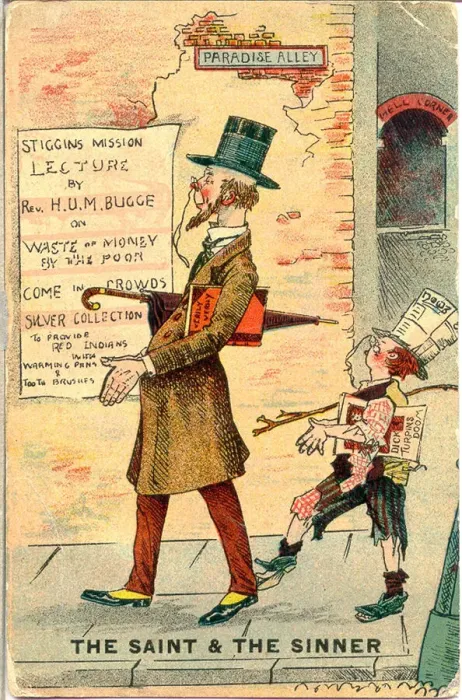 PARADISE ALLEY
HELL CORNER
STIGGINS MISSION
LECTURE
BY
REV. H.U.M. BUGGE
ON
WASTE OF MONEY
BY THE POOR
COME IN CROWDS
SILVER COLLECTION
TO PROVIDE
RED INDIANS
WITH
WARMING PANS
&
TOOTH BRUSHES
VERILY
VERILY
NEWS
DICK
TURPINS
DOOM
THE SAINT & THE SINNER